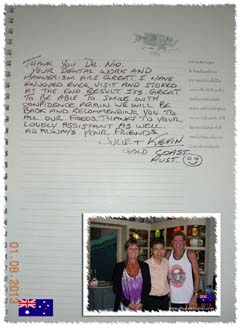 THANK YOU DR NID.
YOUR DENTAL WORK AND
MANNERISM ARE GREAT. I HAVE
ENJOYED EVER VISIT AND STOKED
AT THE END RESULT. ITS GREAT
TO BE ABLE TO SMILE WITH
CONFIDENCE AGAIN. WE WILL BE
BACK AND RECOMMENDING YOU TO
ALL OUR FREDS. THANKS TO YOUR
LOVELY ASSISTANT AS WELL
AS ALWAYS YOUR FRIENDS
JULIE + KEVIN
GOLD COAST
AUST.
01.08.2013